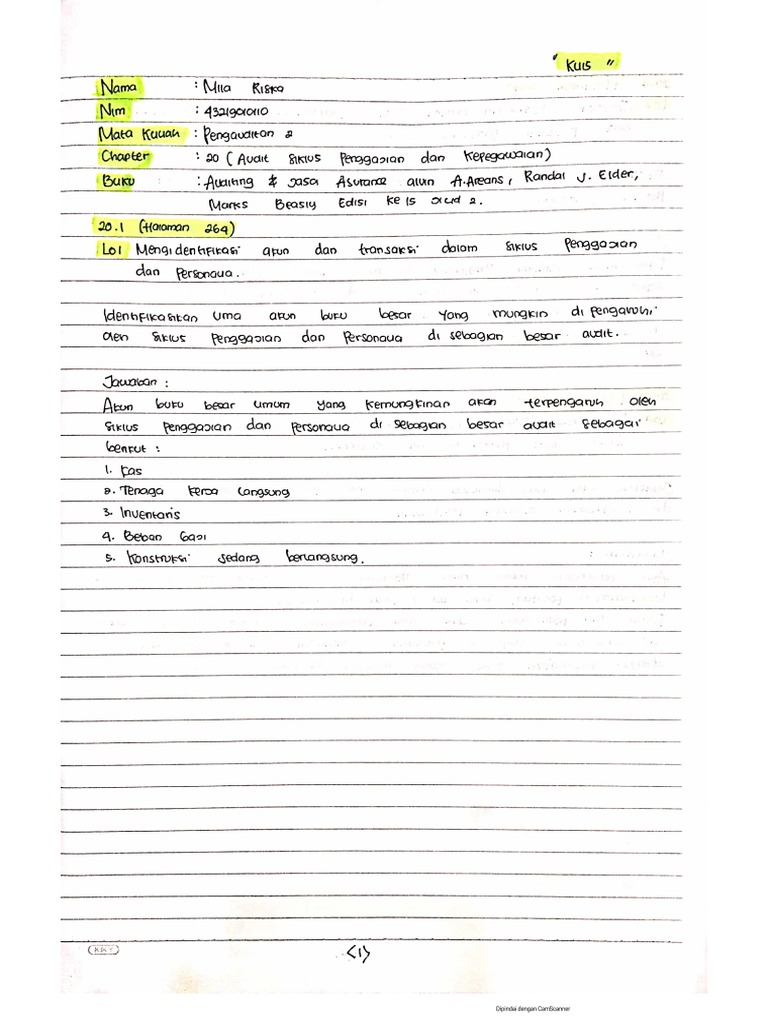 " Kuis "
Nama : Mila Riska
Nim : 4321901010
Mata Kuliah : Pengauditan 2
Chapter : 20 ( Audit Siklus Penggajian dan Kepegawaian)
Buku : Auditing & Jasa Asurance alun A.Areans, Randal J. Elder,
Marks Beasly Edisi ke 15 Jilid 2.
20.1 (Halaman 264)
Lo1 Mengidentifikasi akun dan transaksi dalam siklus Penggajian
dan Personalia.
Identifikasikan lima akun buku besar yang mungkin di pengaruhi
oleh siklus Penggajian dan Personalia di sebagian besar audit.
Jawaban :
Akun buku besar umum yang kemungkinan akan terpengaruh oleh
siklus Penggajian dan Personalia di sebagian besar audit sebagai
berikut :
1. Kas
2. Tenaga kerja langsung
3. Inventaris
4. Beban Gaji
5. Konstruksi sedang berlangsung.
KKY
<1>
Dipindai dengan CamScanner